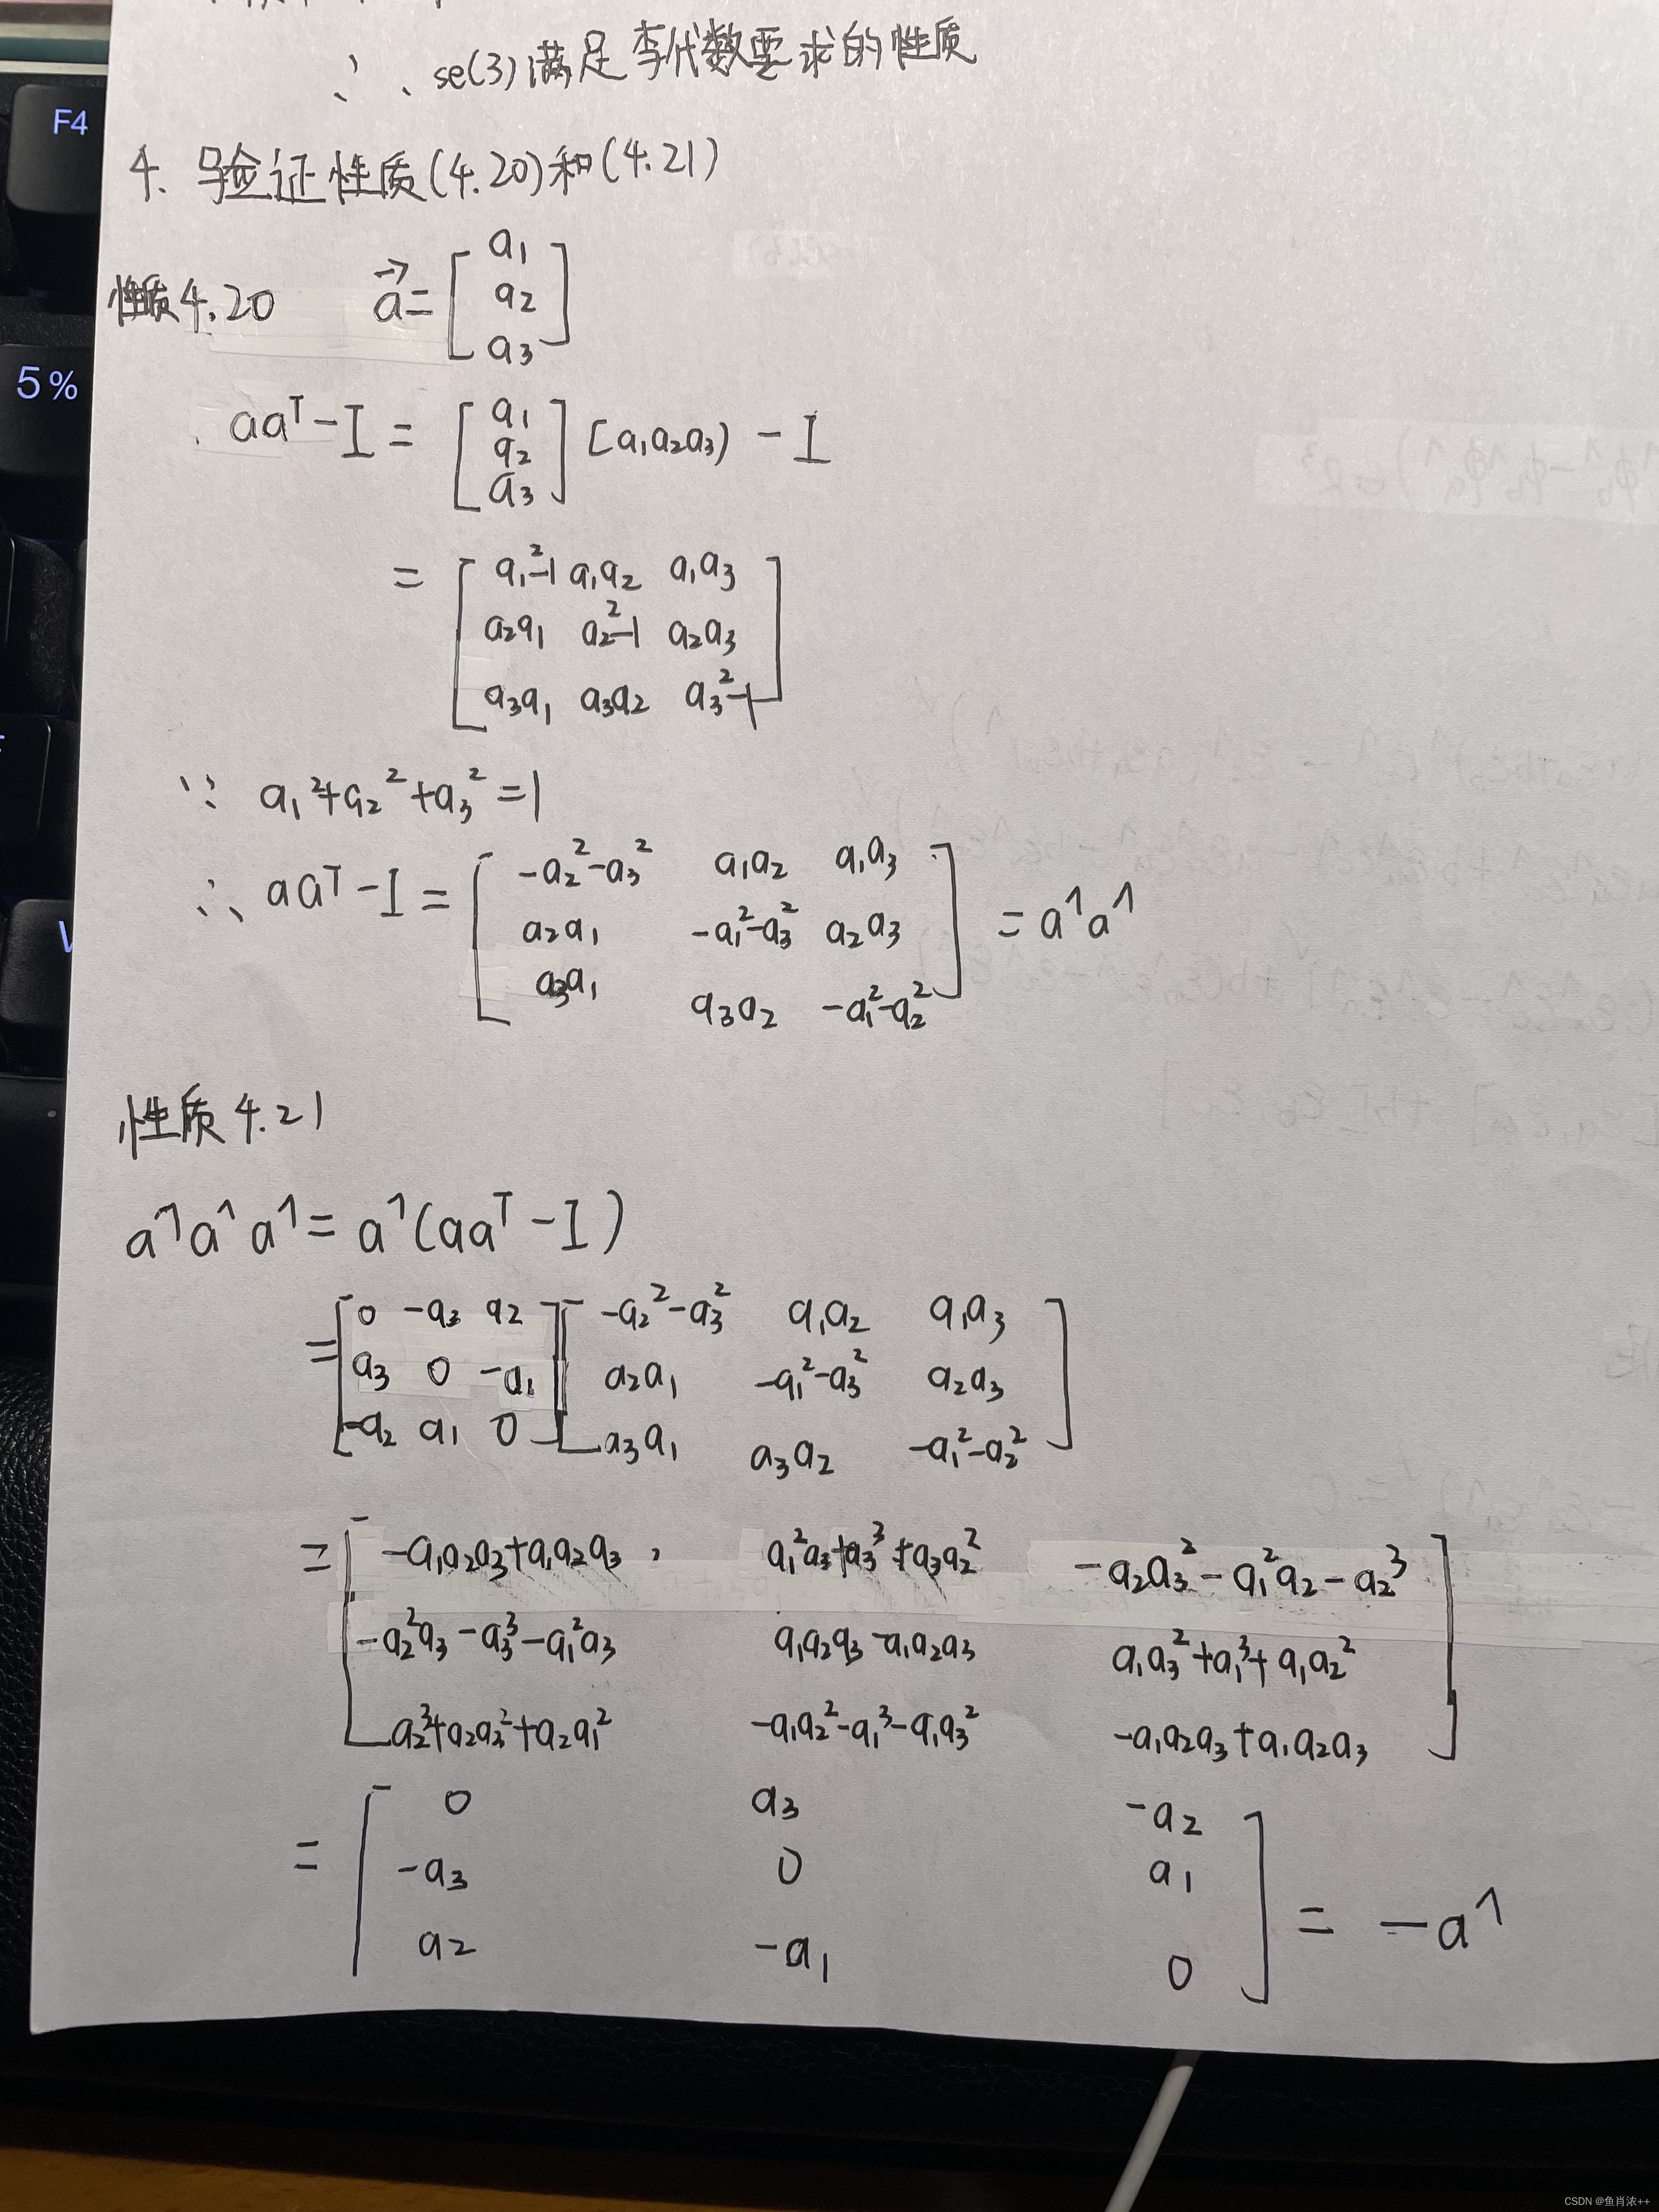 ∴ se(3)满足李代数要求的性质
F4
4. 验证性质(4.20)和(4.21)
性质4.20 a⃗ = [a₁ a₂ a₃]
5%
aaᵀ - I = [a₁ a₂ a₃] [a₁a₂a₃) - I
= [a₁²-1 a₁a₂ a₁a₃
a₂a₁ a₂²-1 a₂a₃
a₃a₁ a₃a₂ a₃²-1]
∵ a₁²+a₂²+a₃²=1
∴ aaᵀ - I = [-a₂²-a₃² a₁a₂ a₁a₃
a₂a₁ -a₁²-a₃² a₂a₃ = a^a^
a₃a₁ a₃a₂ -a₁²-a₂²]
性质4.21
a^a^a^ = a^(aaᵀ - I)
= [0 -a₃ a₂] [-a₂²-a₃² a₁a₂ a₁a₃
a₃ 0 -a₁ a₂a₁ -a₁²-a₃² a₂a₃
-a₂ a₁ 0 a₃a₁ a₃a₂ -a₁²-a₂²]
= [-a₁a₂a₃+a₁a₂a₃, a₁²a₃+a₃³+a₃a₂² -a₂a₃²-a₁²a₂-a₂³
-a₂²a₃-a₃³-a₁²a₃ a₁a₂a₃-a₁a₂a₃ a₁a₃²+a₁³+a₁a₂²
a₂³+a₂a₃²+a₂a₁² -a₁a₂²-a₁³-a₁a₃² -a₁a₂a₃+a₁a₂a₃]
= [0 a₃ -a₂
-a₃ 0 a₁
a₂ -a₁ 0] = -a^
CSDN @鱼肖浓++